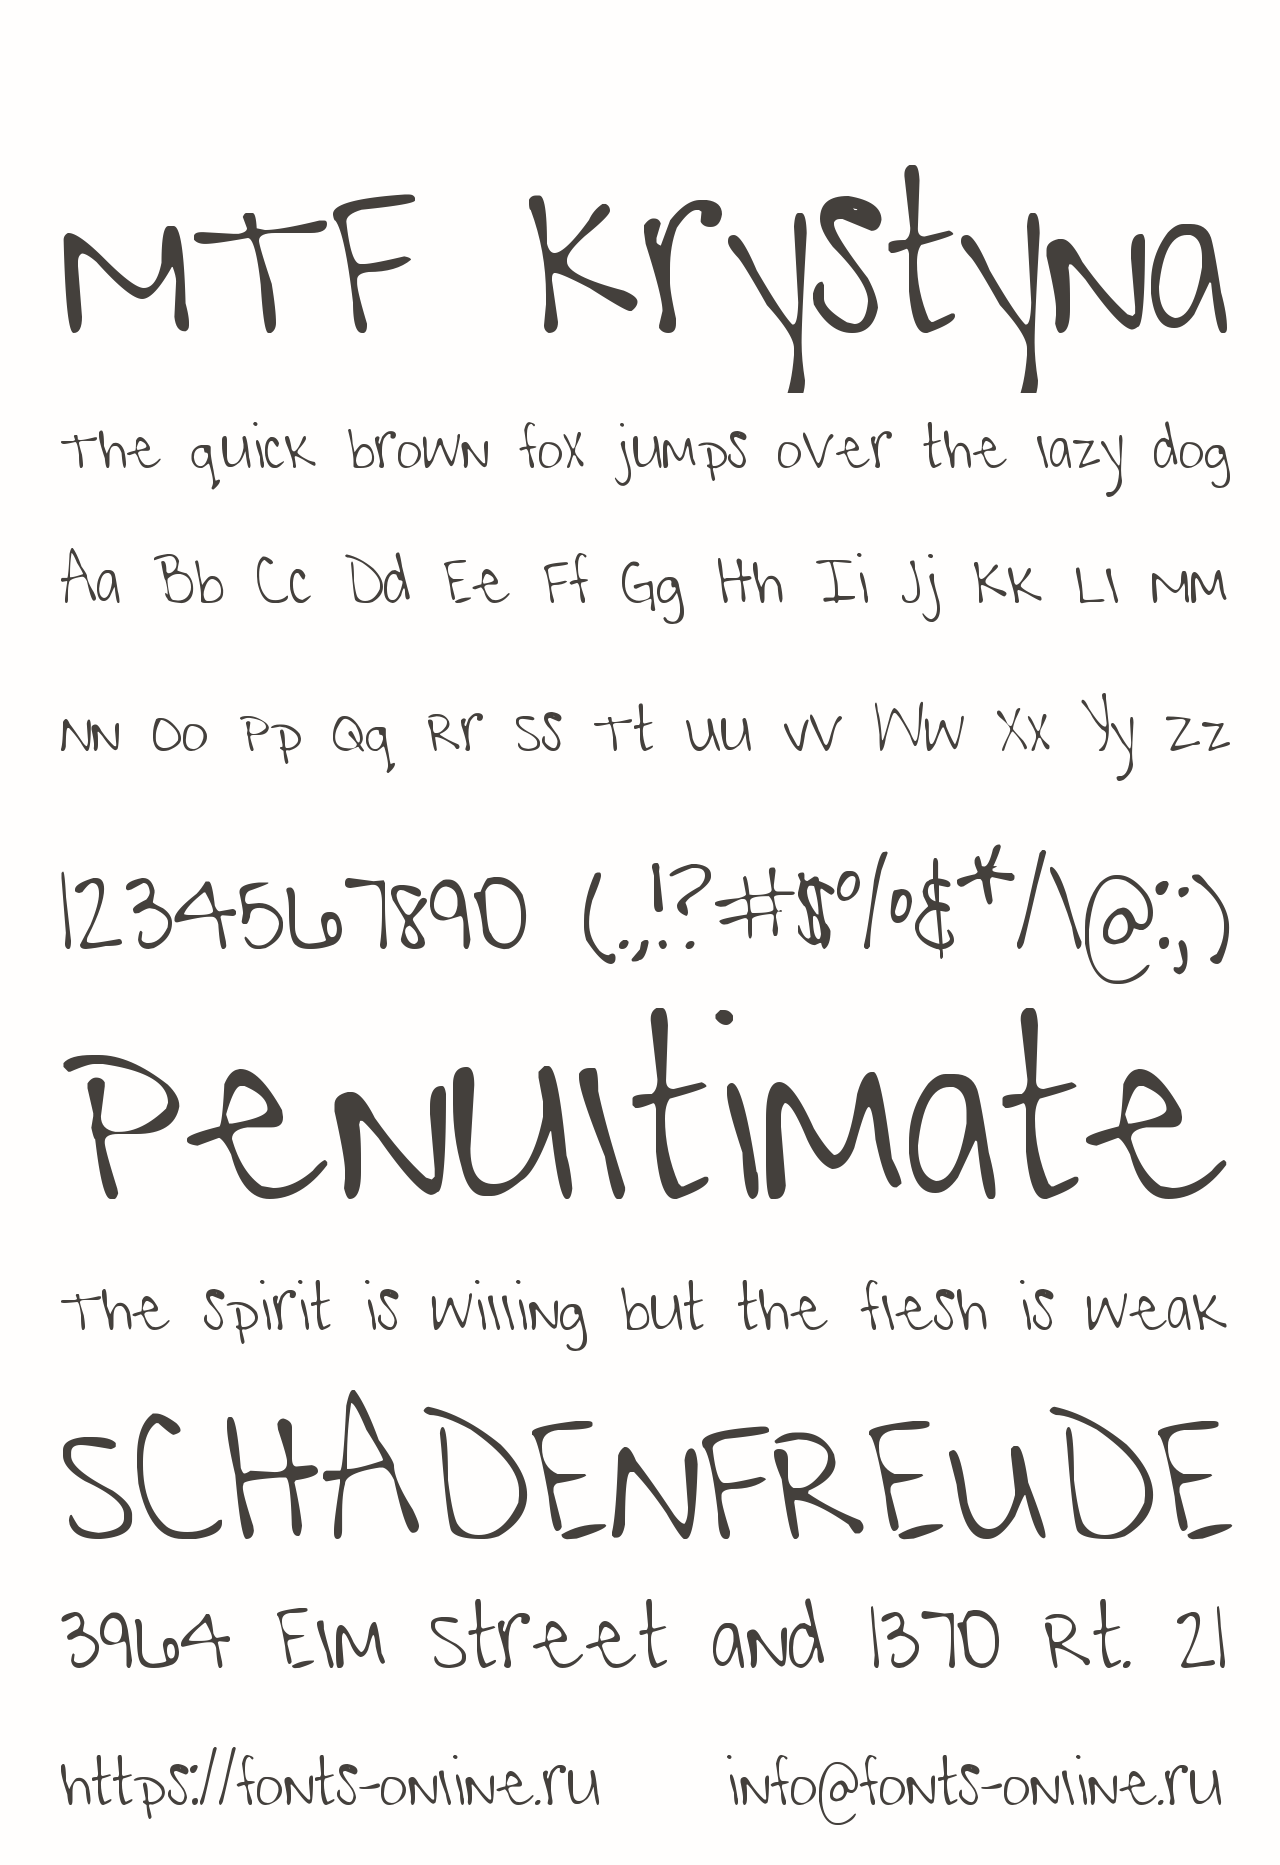 MTF Krystyna
The quick brown fox jumps over the lazy dog
Aa Bb Cc Dd Ee Ff Gg Hh Ii Jj Kk Ll Mm
Nn Oo Pp Qq Rr Ss Tt Uu Vv Ww Xx Yy Zz
1234567890 (.,!?#$%&*/\@:;)
Penultimate
The spirit is willing but the flesh is weak
SCHADENFREUDE
3964 Elm Street and 1370 Rt. 21
https://fonts-online.ru info@fonts-online.ru